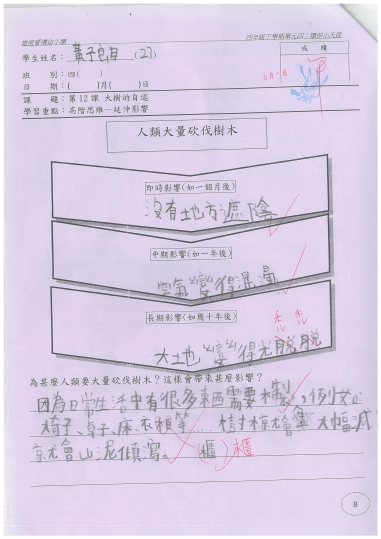 四年級下學期單元四：環保小天使
學生姓名：黃子(23)
班　　別：四(　　)
日　　期：(　　)月(　　)日
成　績
課　　題：第12課 大樹的自述
學習重點：高階思維－延伸影響
人類大量砍伐樹木
即時影響(如一個月後)
沒有地方遮陰
中期影響(如一年後)
空氣變得混濁
長期影響(如幾十年後)
禿 禿
大土地變得光脫脫
為甚麼人類要大量砍伐樹木？這樣會帶來甚麼影響？
因為日常生活中有很多東西需要，例
椅子、桌子、床、衣柜等……樹大幅減
會山泥傾瀉。(櫃)櫃
8